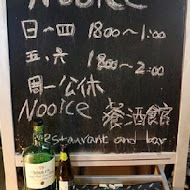 NOOICE
日-四 1800~1:00
五.六 1800~2:00
周一公休
Nooice 餐酒館
restaurant and bar